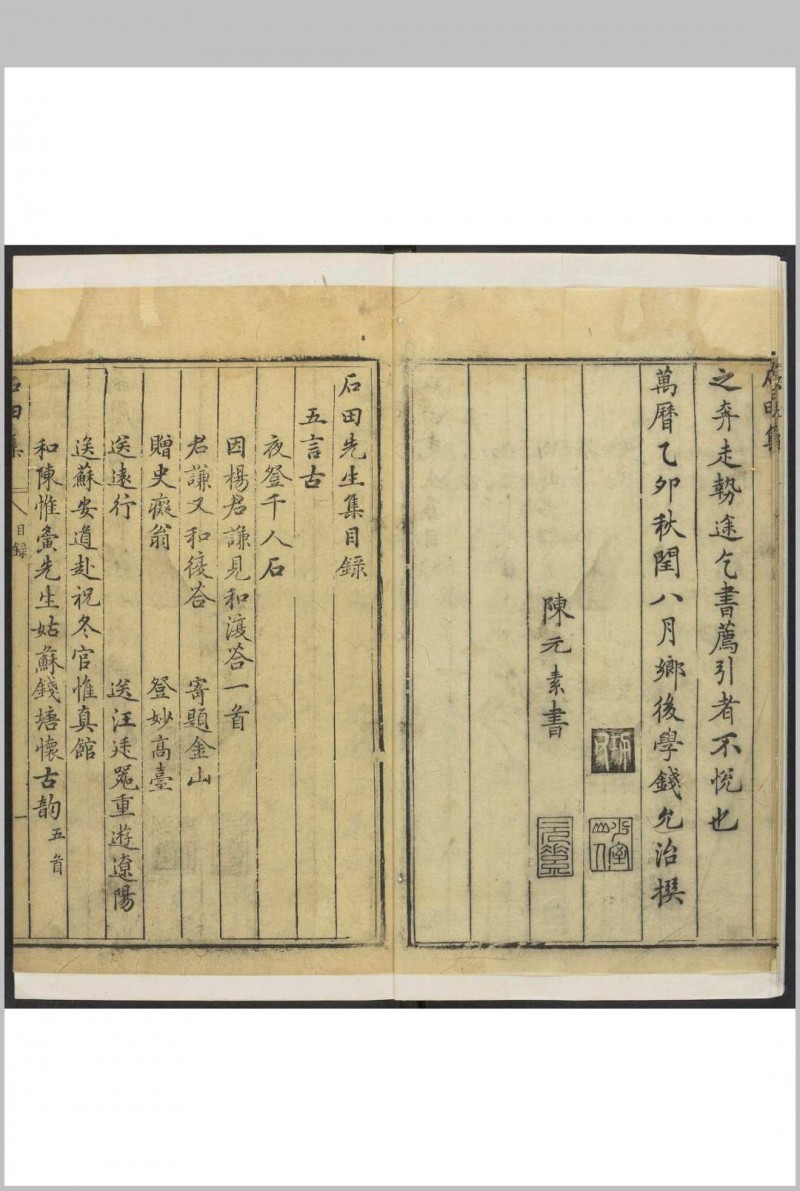 之奔走勢途乞書薦引者不悅也
萬曆乙卯秋閏八月鄉後學錢允治撰
陳元素書
石田先生集目錄
五言古
夜登千人石
因楊君謙見和復答一首
君謙又和復答 寄題金山
贈史癡翁 登妙高臺
送遠行 送汪廷器重遊遼陽
送蘇安道赴祝冬官惟真館
和陳惟寅先生姑蘇錢塘懷古韵五首
石田集 目録 一